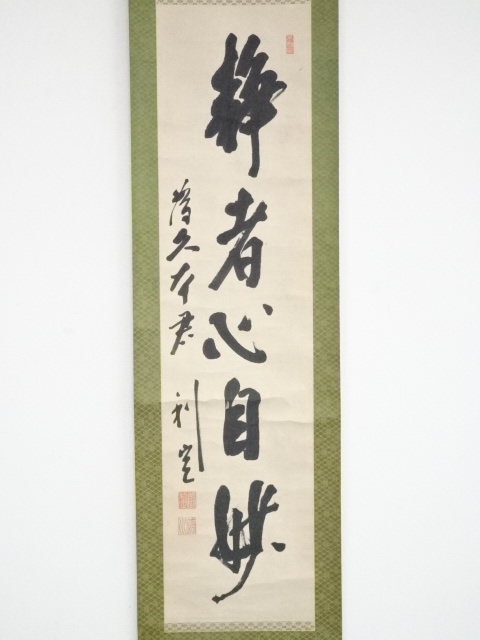 静者心自妙
為久本君
利堂